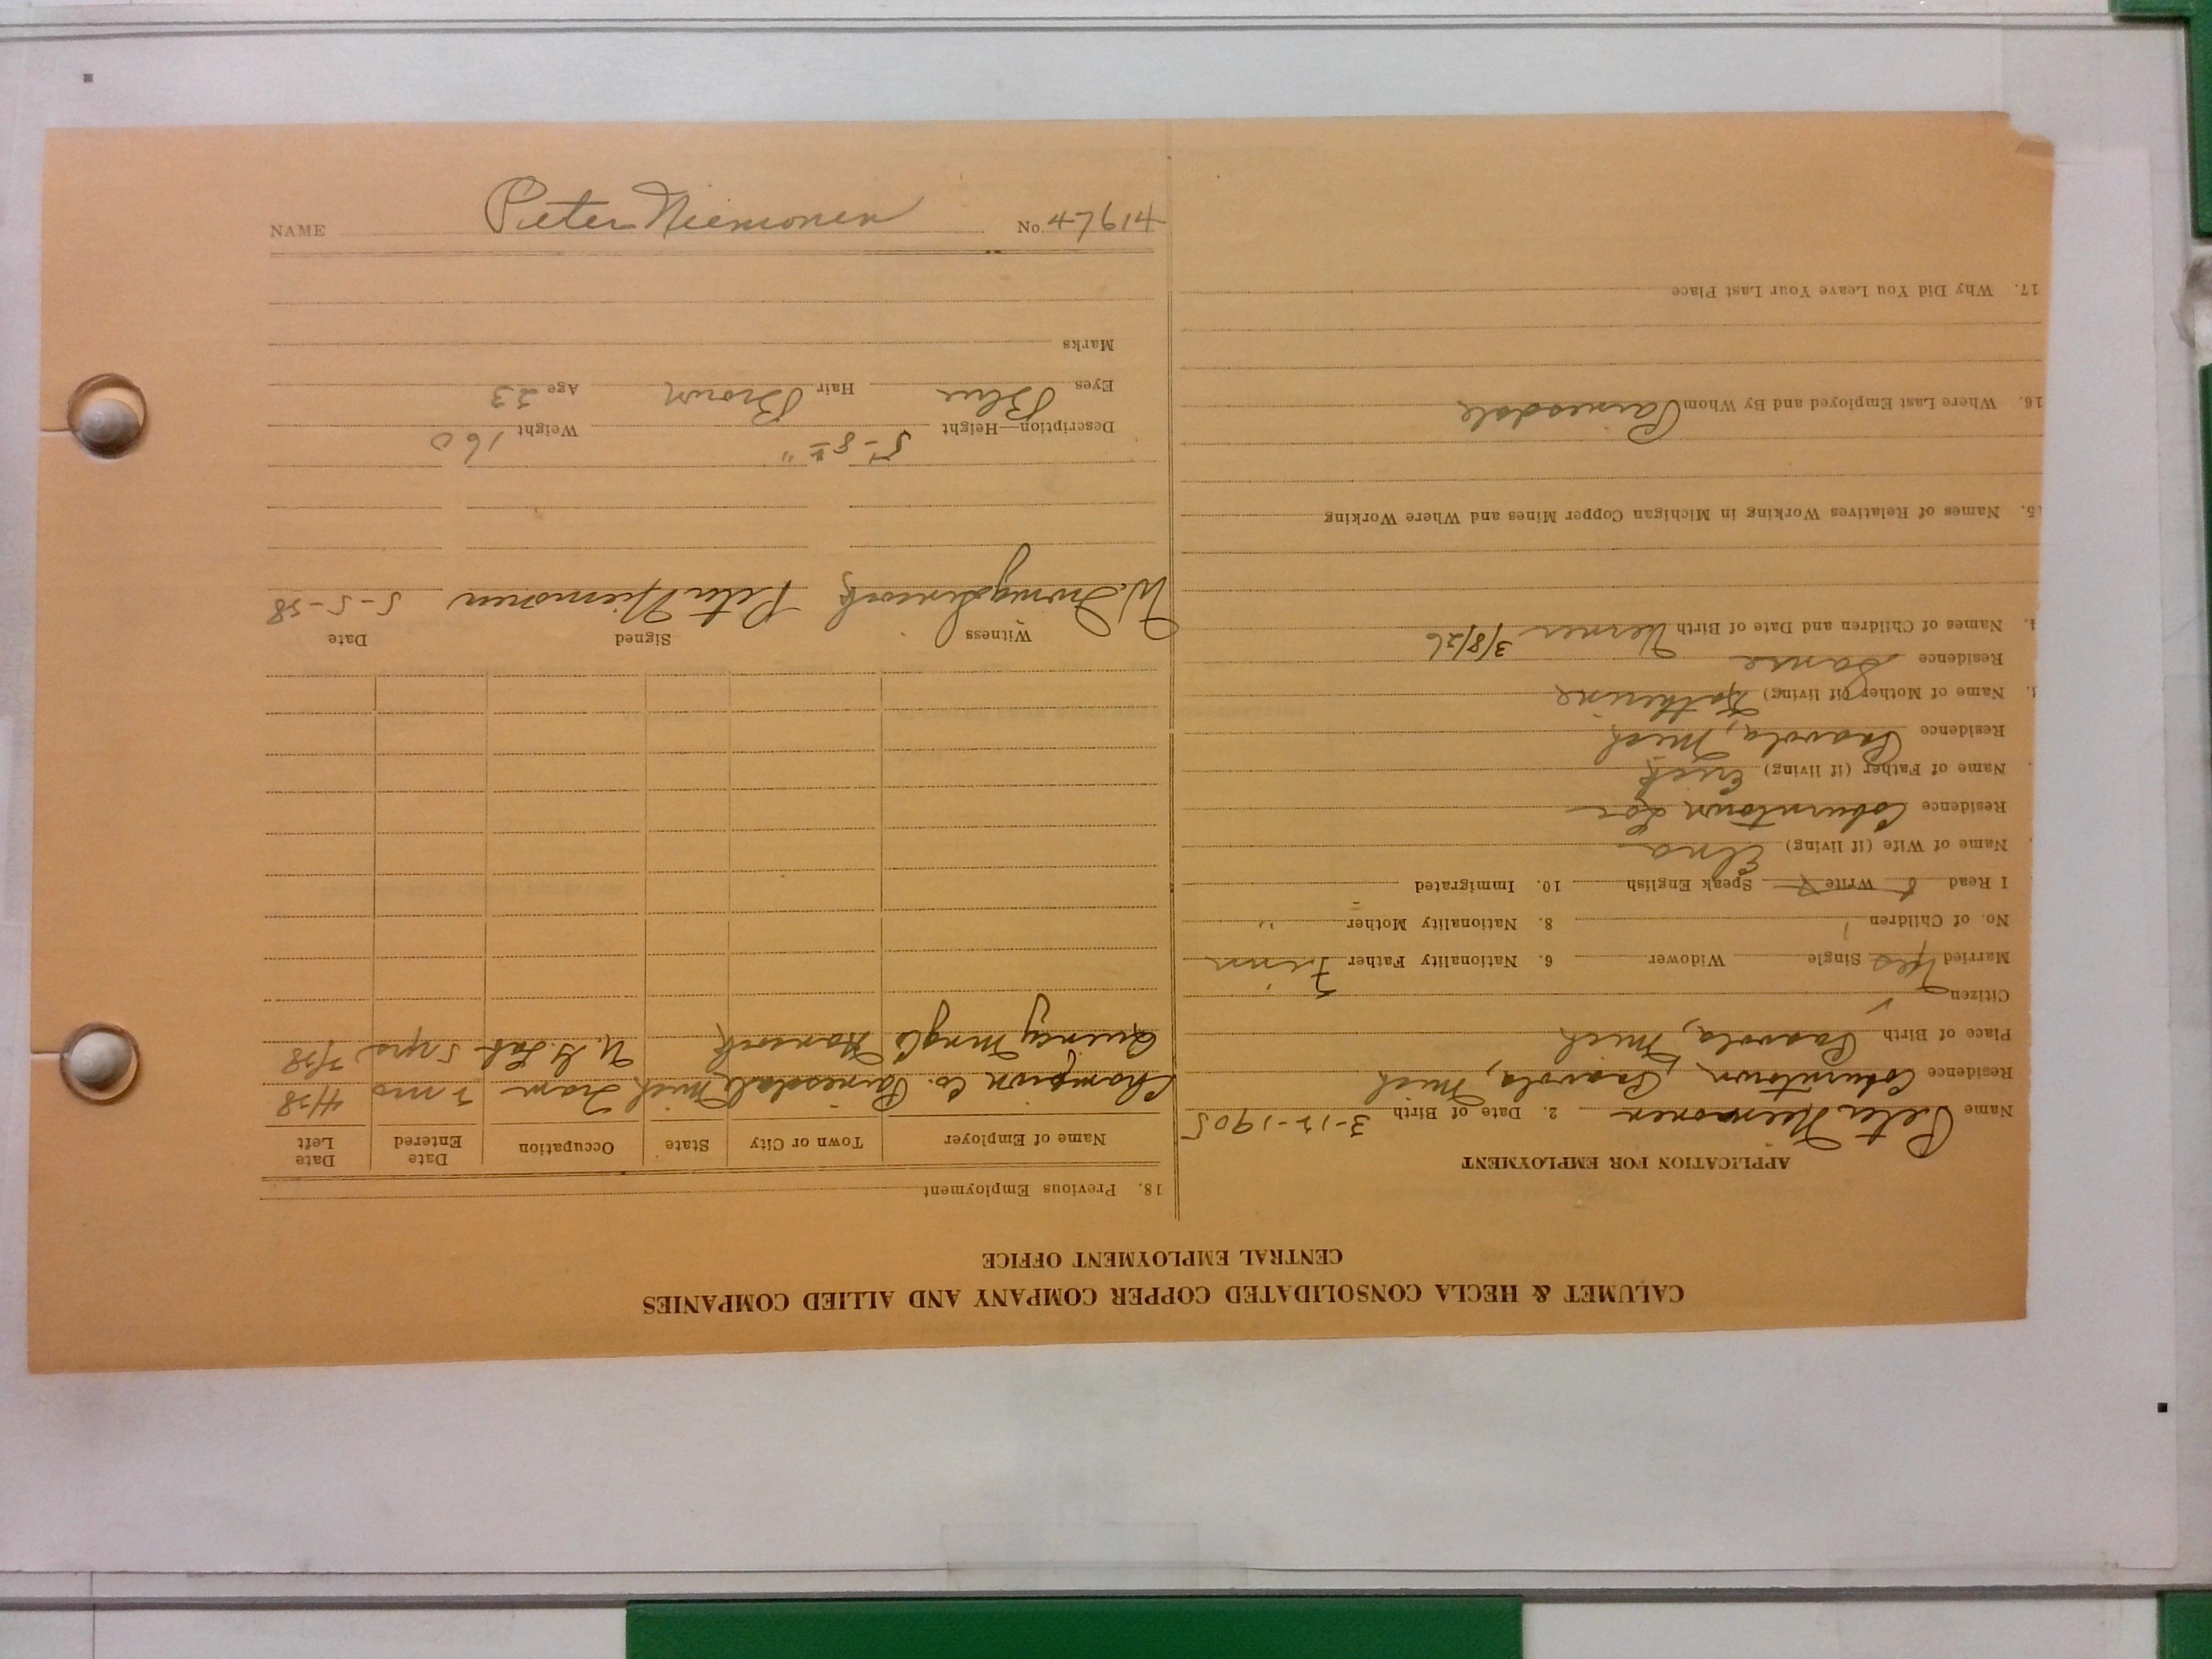 CALUMET & HECLA CONSOLIDATED COPPER COMPANY AND ALLIED COMPANIES
CENTRAL EMPLOYMENT OFFICE
APPLICATION FOR EMPLOYMENT
Name Peter Niemonen 2. Date of Birth 3-12-1905
Residence Coburntown, Paavola, Mich
Place of Birth Paavola, Mich
Citizen
Married Yes Single Widower 6. Nationality Father Finn
No. of Children 1 8. Nationality Mother "
I Read Write Speak English 10. Immigrated
Name of Wife (if living) Elna
Residence Coburntown Loc
Name of Father (if living) Erick
Residence Paavola, Mich
Name of Mother (if living) Katherine
Residence Same
Names of Children and Date of Birth Verner 3/8/26
5. Names of Relatives Working in Michigan Copper Mines and Where Working
16. Where Last Employed and By Whom Painesdale
17. Why Did You Leave Your Last Place
18. Previous Employment
Name of Employer Town or City State Occupation Date Entered Date Left
Champion Co. Painesdale Mich Tram 3 mo 4/28
Quincy Mng Co Hancock U.G. Lab 5 yrs 2/28
Witness Signed Date
Peter Niemonen 5-5-28
Description—Height 5-8½" Weight 160
Eyes Blue Hair Brown Age 23
Marks
NAME Peter Niemonen No. 47614